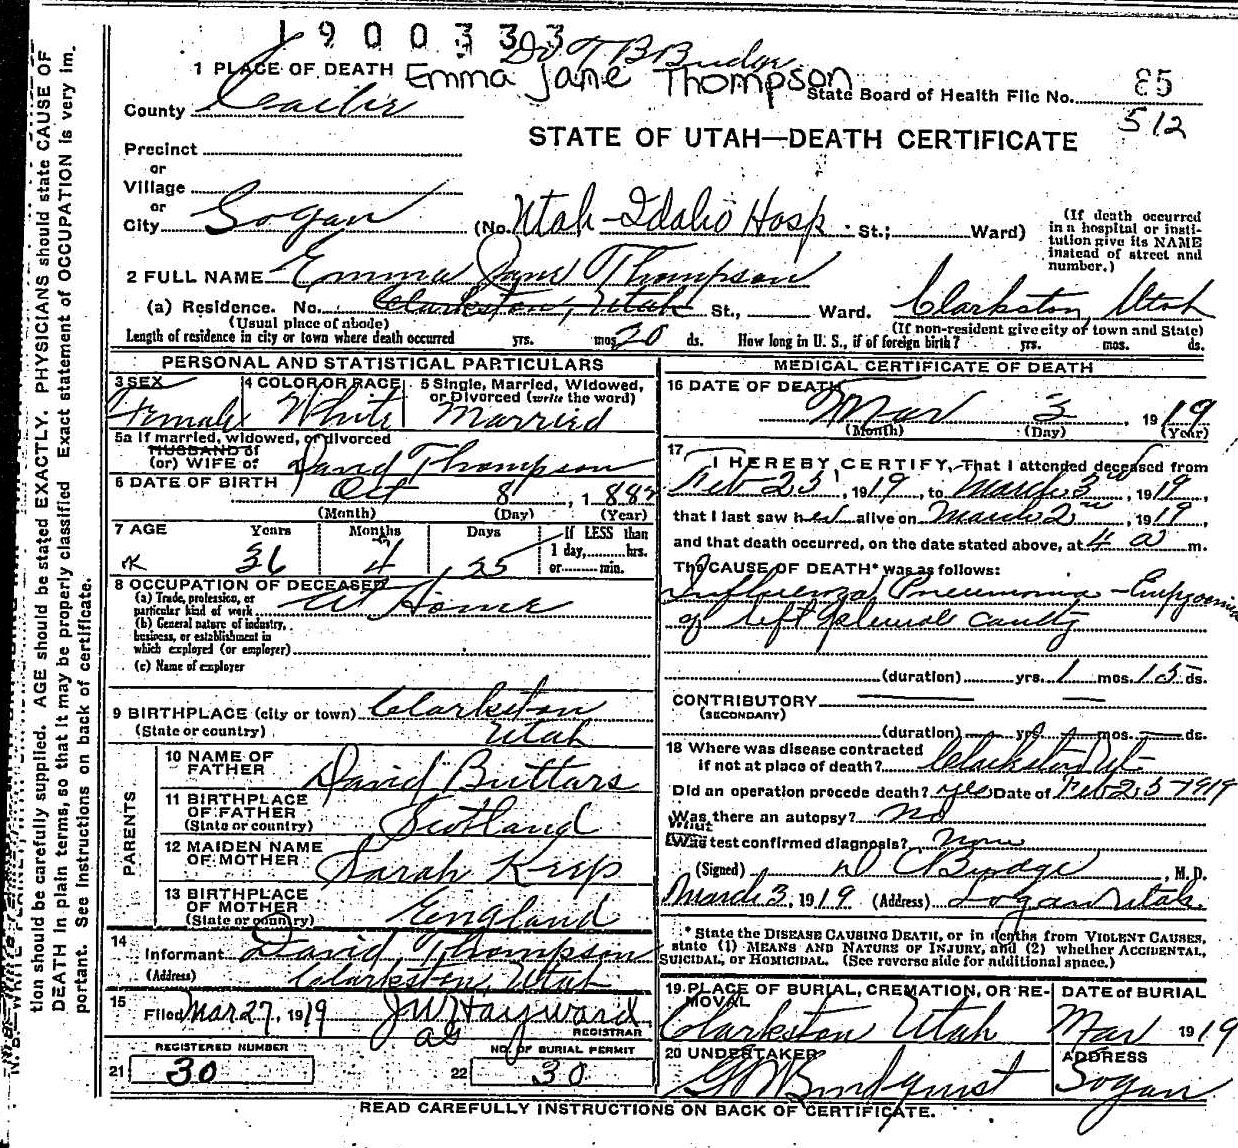 1900333
Dr T B Budge
1 PLACE OF DEATH Emma Jane Thompson
State Board of Health File No. 85
County Cache
512
STATE OF UTAH—DEATH CERTIFICATE
Precinct
or
Village
or
City Logan (No. Utah-Idaho Hosp St.; Ward)
(If death occurred in a hospital or insti-
tution give its NAME
instead of street and
number.)
2 FULL NAME Emma Jane Thompson
(a) Residence. No. Clarkston, Utah St., Ward. Clarkston, Utah
(Usual place of abode) (If non-resident give city or town and State)
Length of residence in city or town where death occurred yrs. mos. 20 ds. How long in U. S., if of foreign birth? yrs. mos. ds.
PERSONAL AND STATISTICAL PARTICULARS
3 SEX 4 COLOR OR RACE 5 Single, Married, Widowed,
or Divorced (write the word)
Female White Married
5a If married, widowed, or divorced
HUSBAND of
(or) WIFE of David Thompson
6 DATE OF BIRTH Oct 8, 1882
(Month) (Day) (Year)
7 AGE Years Months Days If LESS than
1 day, hrs.
or min.
36 4 25
8 OCCUPATION OF DECEASED
(a) Trade, profession, or
particular kind of work At Home
(b) General nature of industry,
business, or establishment in
which employed (or employer)
(c) Name of employer
9 BIRTHPLACE (city or town) Clarkston
(State or country) Utah
PARENTS
10 NAME OF
FATHER David Buttars
11 BIRTHPLACE
OF FATHER
(State or country) Scotland
12 MAIDEN NAME
OF MOTHER Sarah Keep
13 BIRTHPLACE
OF MOTHER
(State or country) England
14
Informant David Thompson
(Address) Clarkston, Utah
15
Filed Mar 27, 1919 J W Hayward
REGISTRAR
REGISTERED NUMBER NO. OF BURIAL PERMIT
21 30 22 30
MEDICAL CERTIFICATE OF DEATH
16 DATE OF DEATH
Mar 3, 1919
(Month) (Day) (Year)
17
I HEREBY CERTIFY, That I attended deceased from
Feb 23, 1919, to March 3rd, 1919,
that I last saw her alive on March 2nd, 1919,
and that death occurred, on the date stated above, at 4 a m.
The CAUSE OF DEATH* was as follows:
Influenza Pneumonia - Empyema
of left pleural cavity
(duration) yrs. 1 mos. 15 ds.
CONTRIBUTORY
(SECONDARY)
(duration) yrs. mos. ds.
18 Where was disease contracted
if not at place of death? Clarkston Ut
Did an operation precede death? yes Date of Feb 25-1919
Was there an autopsy? No
What test confirmed diagnosis? None
(Signed) D C Budge, M.D.
March 3, 1919 (Address) Logan Utah.
* State the DISEASE CAUSING DEATH, or in deaths from VIOLENT CAUSES,
state (1) MEANS AND NATURE OF INJURY, and (2) whether ACCIDENTAL,
SUICIDAL, or HOMICIDAL. (See reverse side for additional space.)
19 PLACE OF BURIAL, CREMATION, OR RE-
MOVAL DATE of BURIAL
Clarkston Utah Mar 1919
20 UNDERTAKER ADDRESS
Logan
READ CAREFULLY INSTRUCTIONS ON BACK OF CERTIFICATE.
tion should be carefully supplied. AGE should be stated EXACTLY. PHYSICIANS should state CAUSE OF
DEATH in plain terms, so that it may be properly classified. Exact statement of OCCUPATION is very im-
portant. See instructions on back of certificate.